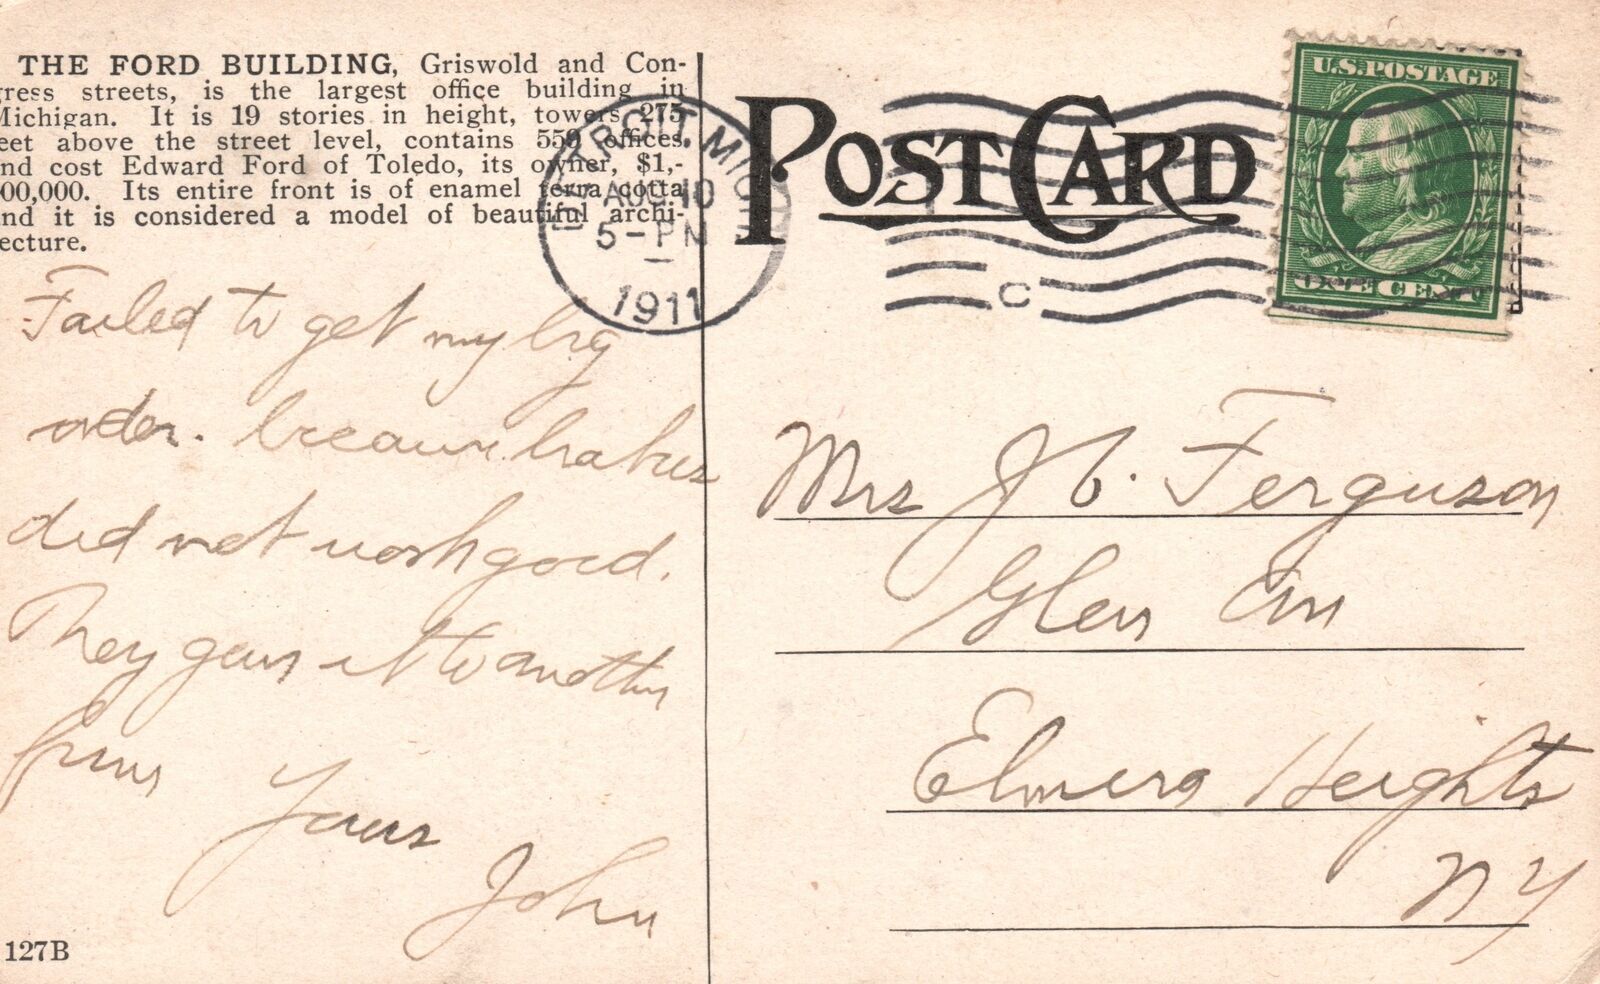 THE FORD BUILDING, Griswold and Con-
gress streets, is the largest office building in
Michigan. It is 19 stories in height, towers 275
eet above the street level, contains 559 offices,
nd cost Edward Ford of Toledo, its owner, $1,-
00,000. Its entire front is of enamel terra cotta
nd it is considered a model of beautiful archi-
ecture.
POST CARD
DETROIT, MICH
AUG 10
5-PM
1911
C
U.S. POSTAGE
ONE CENT
Failed to get my big
order. because brakes
did not work good.
They gave it to another
firm
Yours
John
Mrs J C. Ferguson
Glen Ave
Elmira Heights
N Y
127B